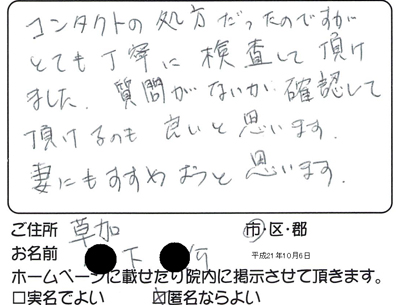 コンタクトの処方だったのですが
とても丁寧に検査して頂け
ました。質問がないか確認して
頂けるのも良いと思います。
妻にもすすめようと思います。
ご住所 草加 市・区・郡
お名前 下 平成21年10月6日
ホームページに載せたり院内に掲示させて頂きます。
□実名でよい □匿名ならよい